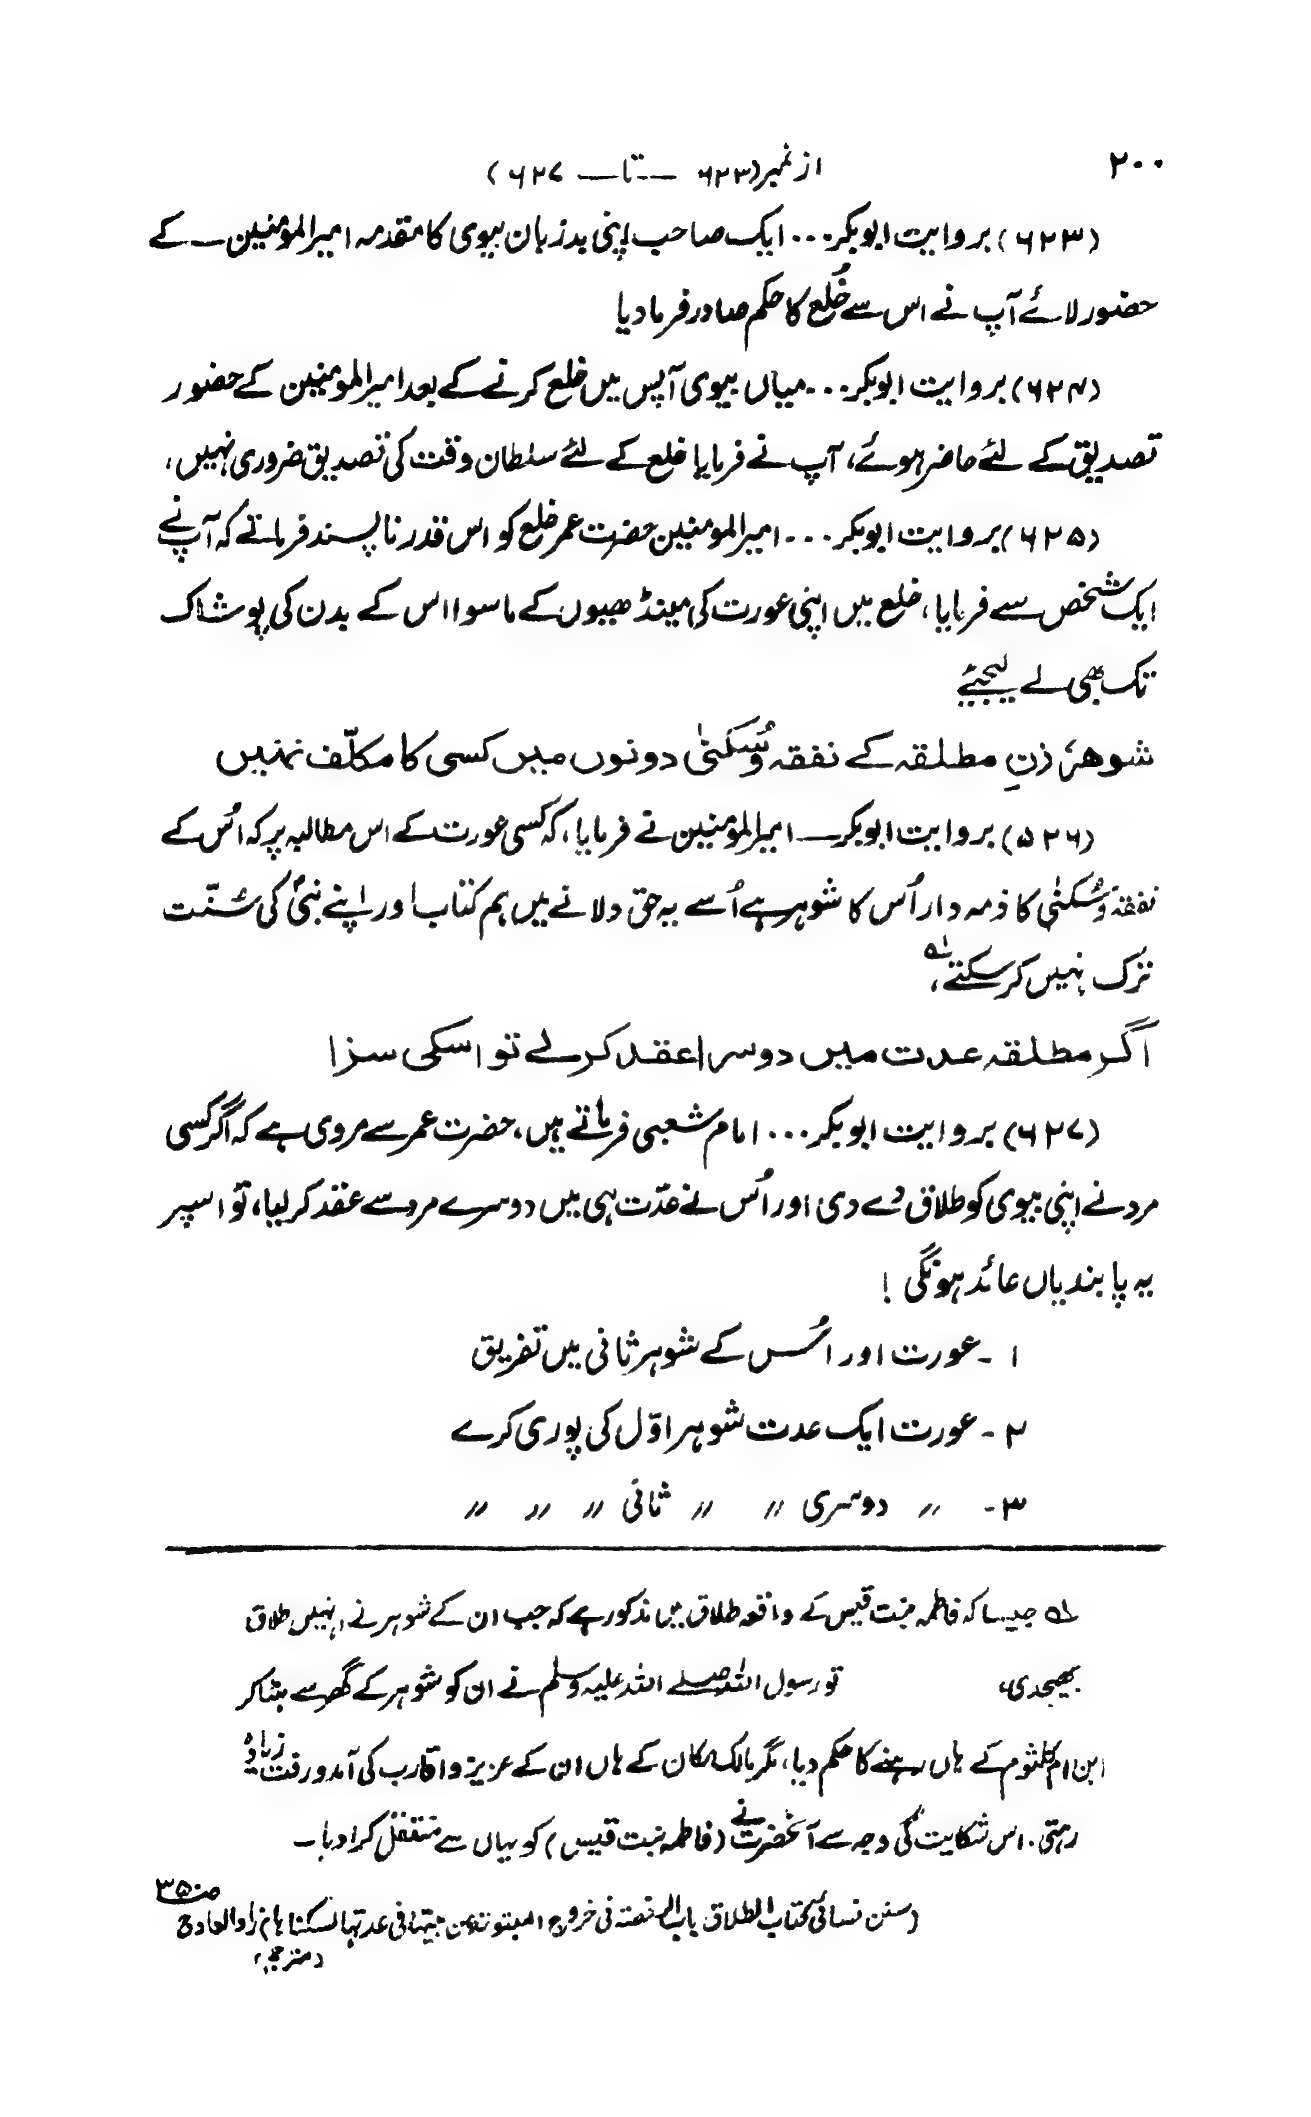 ۲۰۰
از نمبر (۶۲۳ -- تا -- ۶۲۷)
(۶۲۳) بروایت ابوبکر... ایک صاحب اپنی بدزبان بیوی کا مقدمہ امیرالمومنین ــ کے
حضور لائے آپ نے اس سے خُلع کا حکم صادر فرما دیا
(۶۲۴) بروایت ابوبکر... میاں بیوی آپس میں خلع کرنے کے بعد امیرالمومنین کے حضور
تصدیق کے لئے حاضر ہوئے، آپ نے فرمایا خلع کے لئے سلطان وقت کی تصدیق ضروری نہیں،
(۶۲۵) بروایت ابوبکر... امیرالمومنین حضرت عمر خلع کو اس قدر ناپسند فرماتے کہ آپ نے
ایک شخص سے فرمایا، خلع میں اپنی عورت کی مینڈھیوں کے ماسوا اس کے بدن کی پوشاک
تک بھی لے لیجئے
شوھرِ زنِ مطلقہ کے نفقہ و سُکنیٰ دونوں میں کسی کا مکلّف نہیں
(۵۲۶) بروایت ابوبکر ــ امیرالمومنین نے فرمایا، کہ کسی عورت کے اس مطالبہ پر کہ اُس کے
نفقہ و سُکنیٰ کا ذمہ دار اُس کا شوہر ہے اُسے یہ حق دلانے میں ہم کتاب اور اپنے نبیؐ کی سُنّت
ترک نہیں کر سکتے، لہ
اگر مطلقہ عدت میں دوسرا عقد کرلے تو اسکی سزا
(۶۲۷) بروایت ابوبکر... امام شعبی فرماتے ہیں، حضرت عمر سے مروی ہے کہ اگر کسی
مرد نے اپنی بیوی کو طلاق دے دی اور اُس نے عدّت ہی میں دوسرے مرد سے عقد کر لیا، تو اسپر
یہ پابندیاں عائد ہونگی !
۱ - عورت اور اُس کے شوہر ثانی میں تفریق
۲ - عورت ایک عدت شوہر اوّل کی پوری کرے
۳ - 〃 دوسری 〃 〃 ثانی 〃 〃 〃
لہ جیسا کہ فاطمہ بنت قیس کے واقعہ طلاق میں مذکور ہے کہ جب ان کے شوہر نے انہیں طلاق
بھیجدی، تو رسول اللہ صلے اللہ علیہ وسلم نے ان کو شوہر کے گھر سے ہٹا کر
ابن ام کلثوم کے ہاں رہنے کا حکم دیا، مگر مالک مکان کے ہاں ان کے عزیز و اقارب کی آمدورفت زیادہ
رہتی. اس شکایت کی وجہ سے آنحضرت نے (فاطمہ بنت قیس) کو یہاں سے منتقل کرا دیا ــ
(سنن نسائی کتاب الطلاق باب الرخصتہ فی خروج المبتوتہ من بیتہا فی عدتہا لسکناہا، زاد المعاد ج
(مترجم)